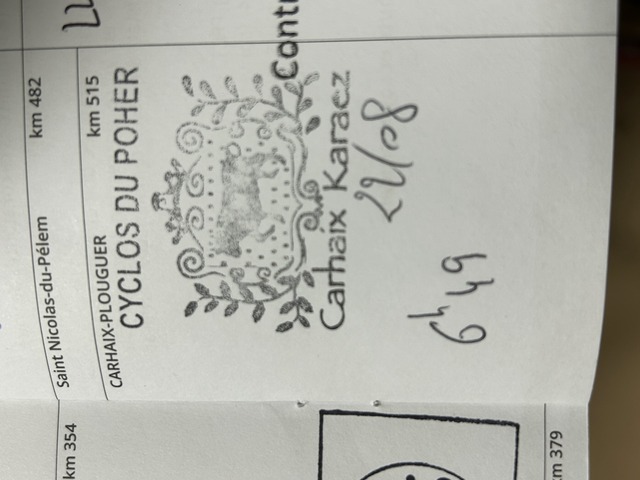 km 354
Saint Nicolas-du-Pélem km 482
CARHAIX-PLOUGUER km 515
CYCLOS DU POHER
Carhaix Karaez
22/08
6h49
km 379